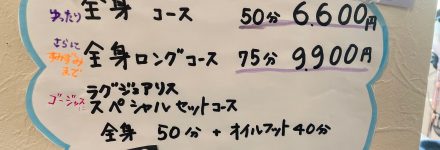 ゆったり 全身 コース 50分 6,600円
さらにすみずみまで 全身ロングコース 75分 9,900円
ゴージャスに ラグジュアリス
スペシャルセットコース
全身 50分 + オイルフット40分